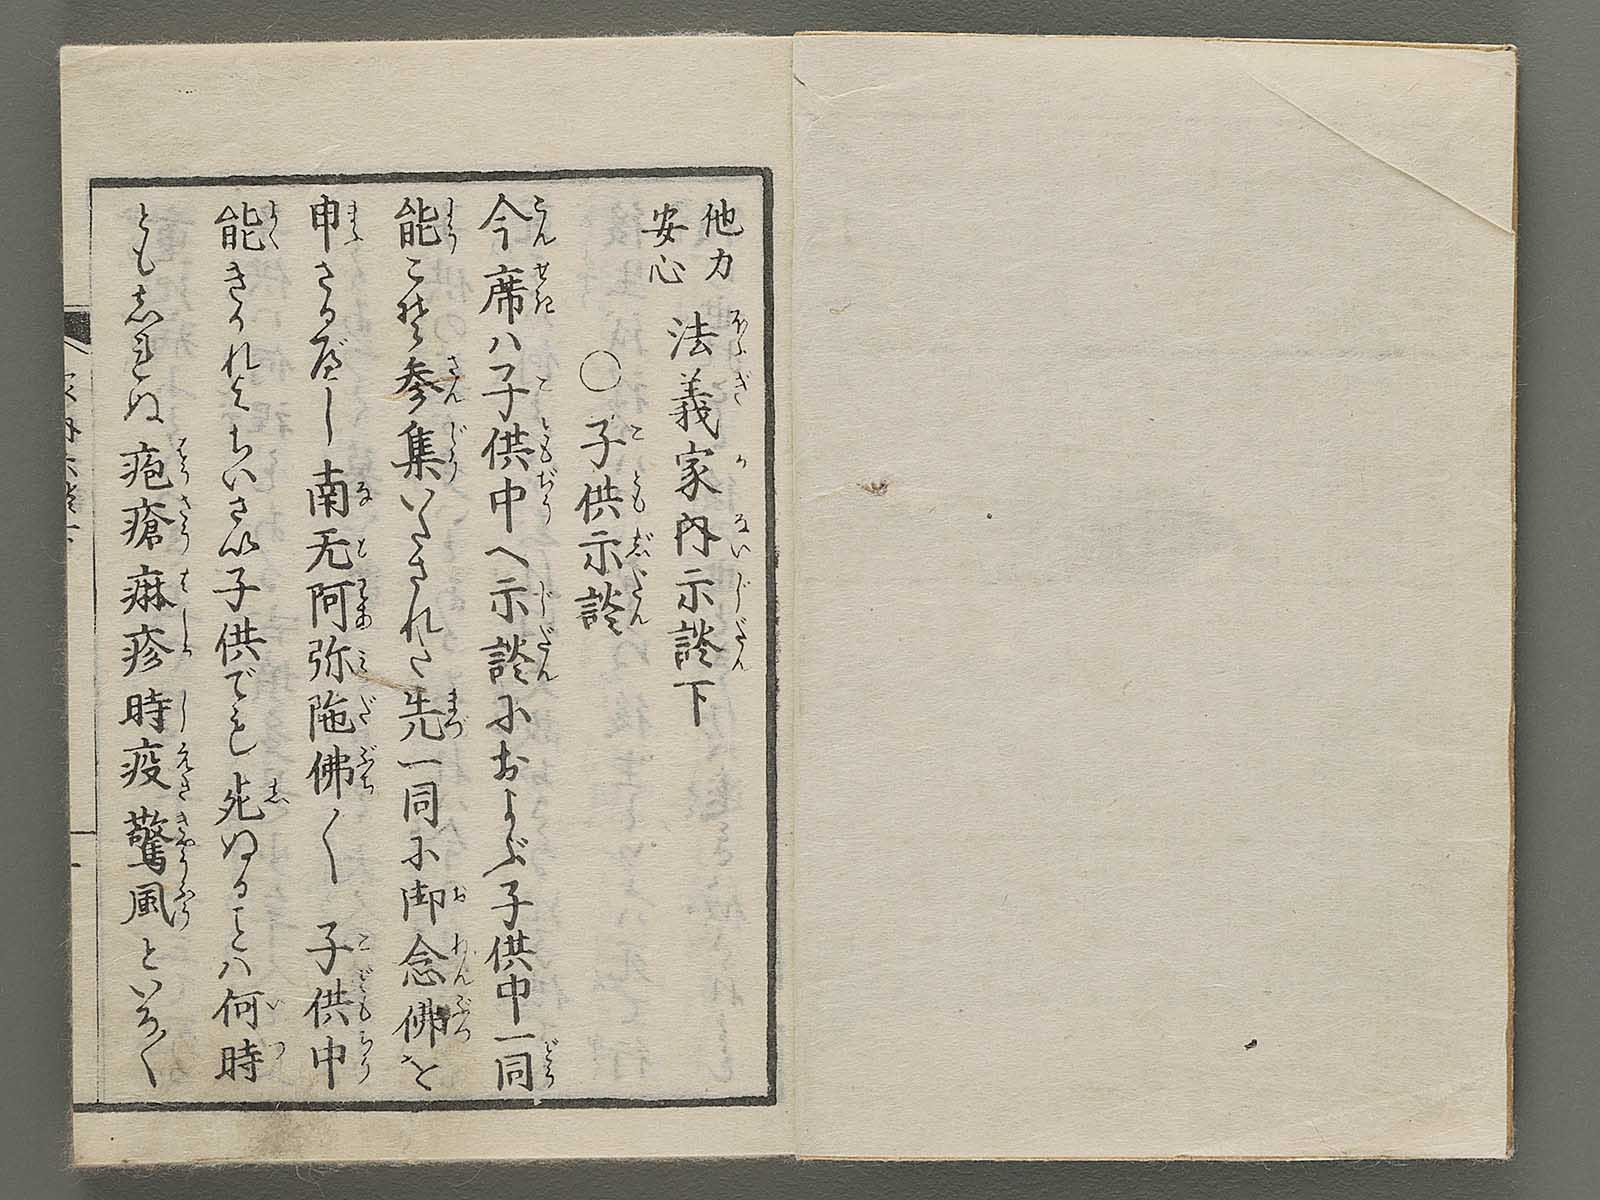 他力
安心
法義家内示談下
○子供示談
今席ハ子供中へ示談におよぶ子供中一同
能こそ参集いたされた先一同に御念佛を
申さるべし南无阿弥陀佛〱子供中
能きかれよちいさい子供でも死ぬることハ何時
ともしれぬ疱瘡麻疹時疫驚風といろ〱